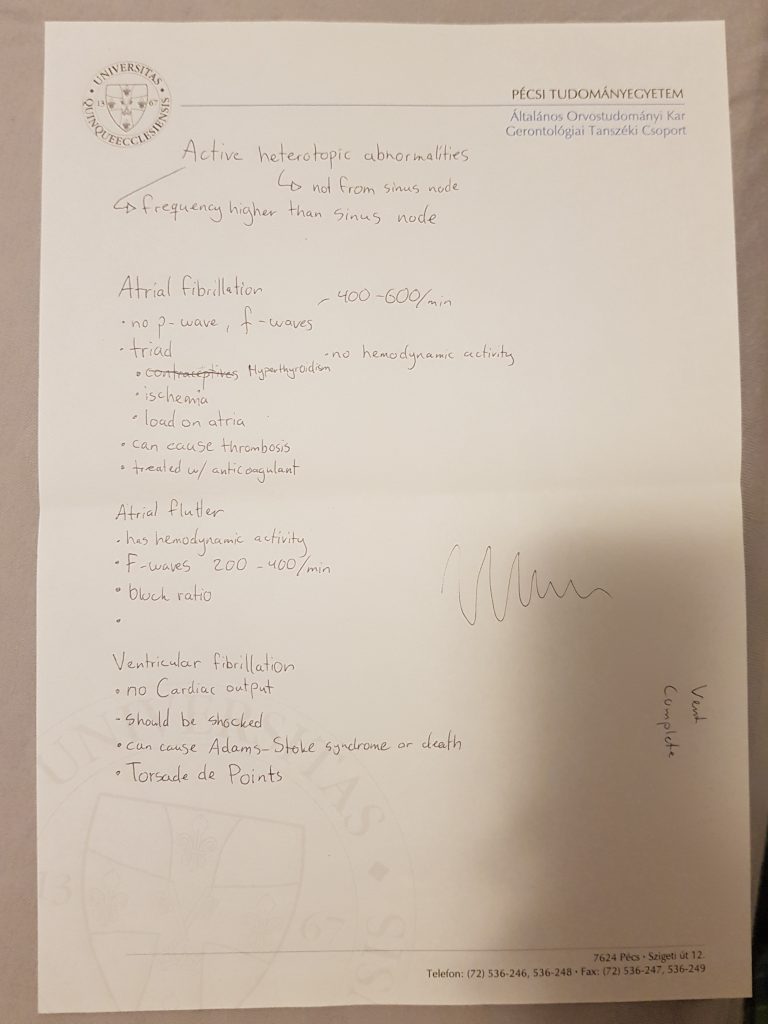 UNIVERSITAS QUINQUEECCLESIENSIS
13 67
PÉCSI TUDOMÁNYEGYETEM
Általános Orvostudományi Kar
Gerontológiai Tanszéki Csoport
Active heterotopic abnormalities
↳ not from sinus node
↳ frequency higher than sinus node
Atrial fibrillation
- 400-600/min
• no p-wave, f-waves
• triad
- no hemodynamic activity
• contraceptives Hyperthyroidism
• ischemia
• load on atria
• can cause thrombosis
• treated w/ anticoagulant
Atrial flutter
• has hemodynamic activity
• F-waves 200-400/min
• block ratio
•
Ventricular fibrillation
• no Cardiac output
- should be shocked
• can cause Adams-Stoke syndrome or death
• Torsade de Points
Vent
Complete
UNIVERSITAS
13 67
7624 Pécs • Szigeti út 12.
Telefon: (72) 536-246, 536-248 • Fax: (72) 536-247, 536-249